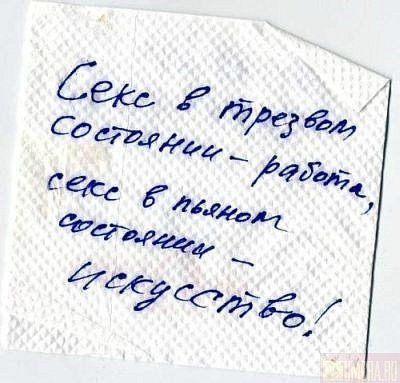 Секс в трезвом
состоянии – работа,
секс в пьяном
состоянии –
искусство!